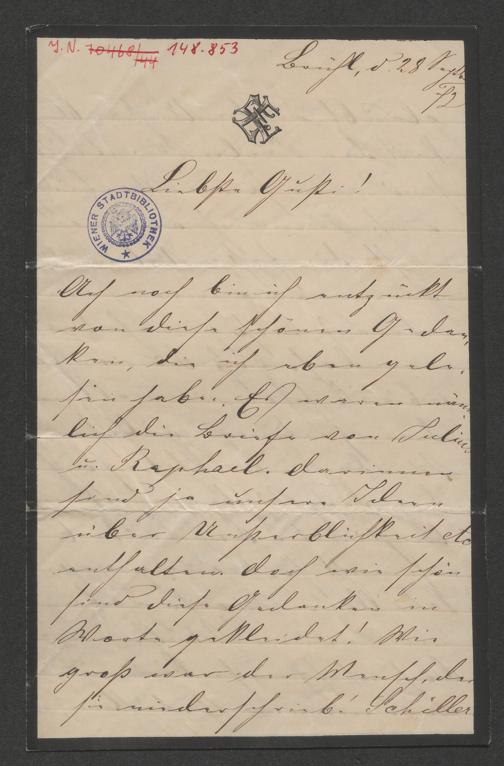 J.N. 70468/44 148.853
Brühl, d. 28 Septb
72
Liebste Gusti!
WIENER STADTBIBLIOTHEK
Ach noch bin ich entzückt
von diese schönen Gedan,
ken, die ich eben gele,
sen habe. Es waren näm
lich die Briefe von Julius
u. Raphael. darinnen
sind ja unsere Ideen
über Unsterblichkeit etc
enthalten. doch wie schön
sind diese Gedanken in
Worte gekleidet! Wie
groß war der Mensch, der
sie niederschrieb! Schiller